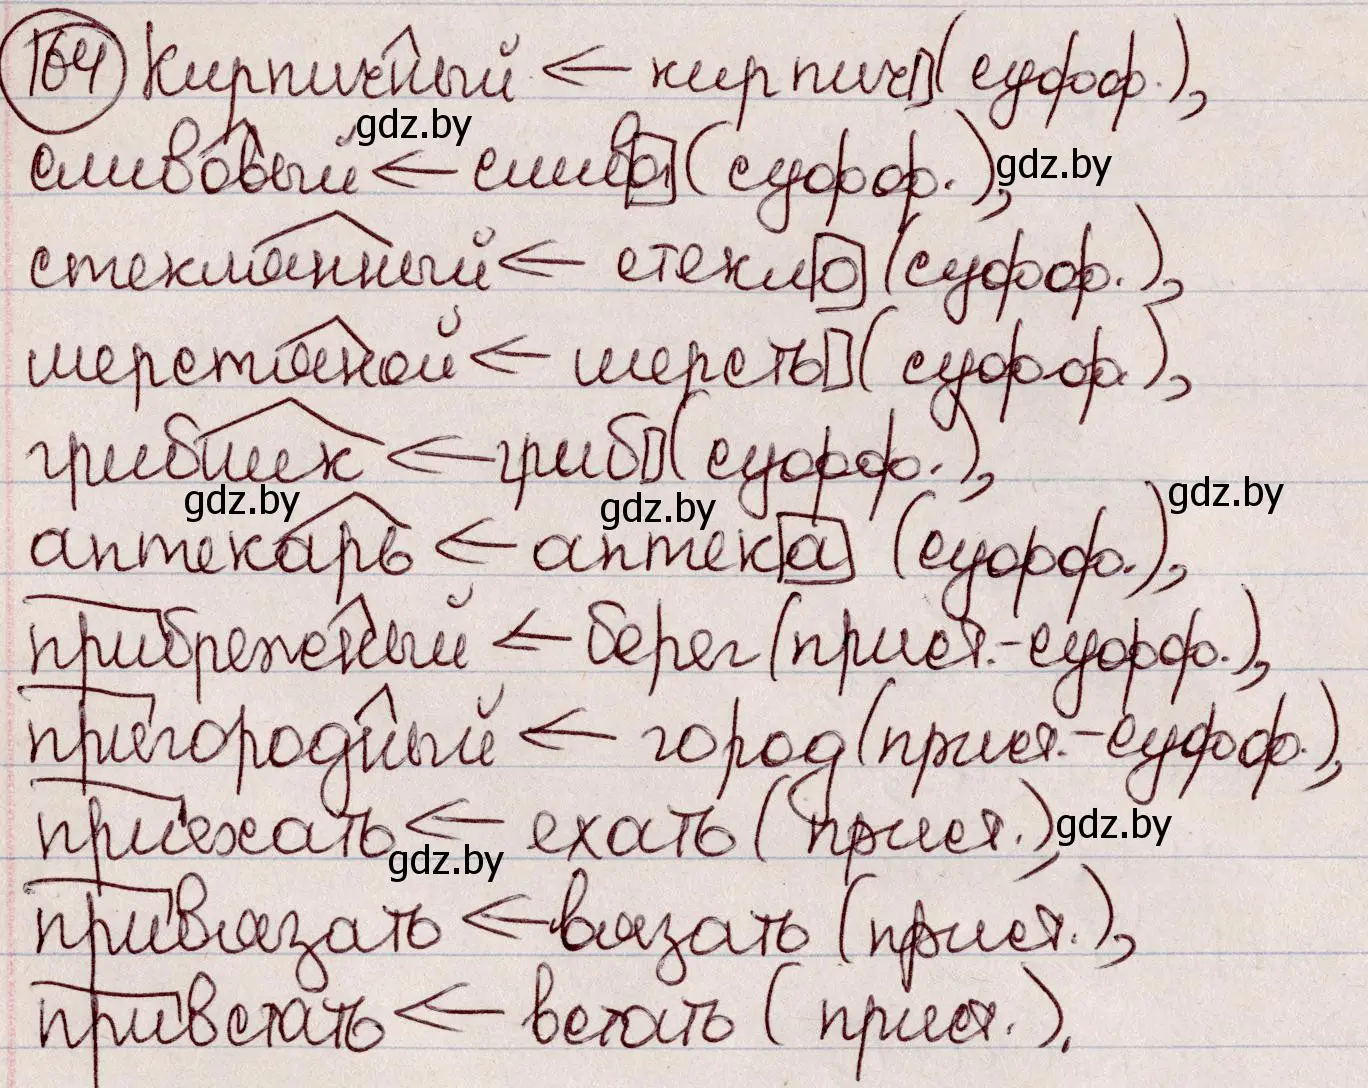 164 Кирпичный ← кирпич (суфф.),
gdz.by
сливовый ← слива (суфф.),
gdz.by
стеклянный ← стекло (суфф.),
шерстяной ← шерсть (суфф.),
грибник ← гриб (суфф.),
gdz.by gdz.by gdz.by
аптекарь ← аптека (суфф.),
прибрежный ← берег (прист.-суфф.),
пригородный ← город (прист.-суфф.),
приехать ← ехать (прист.),
gdz.by gdz.by
привязать ← вязать (прист.),
привстать ← встать (прист.).